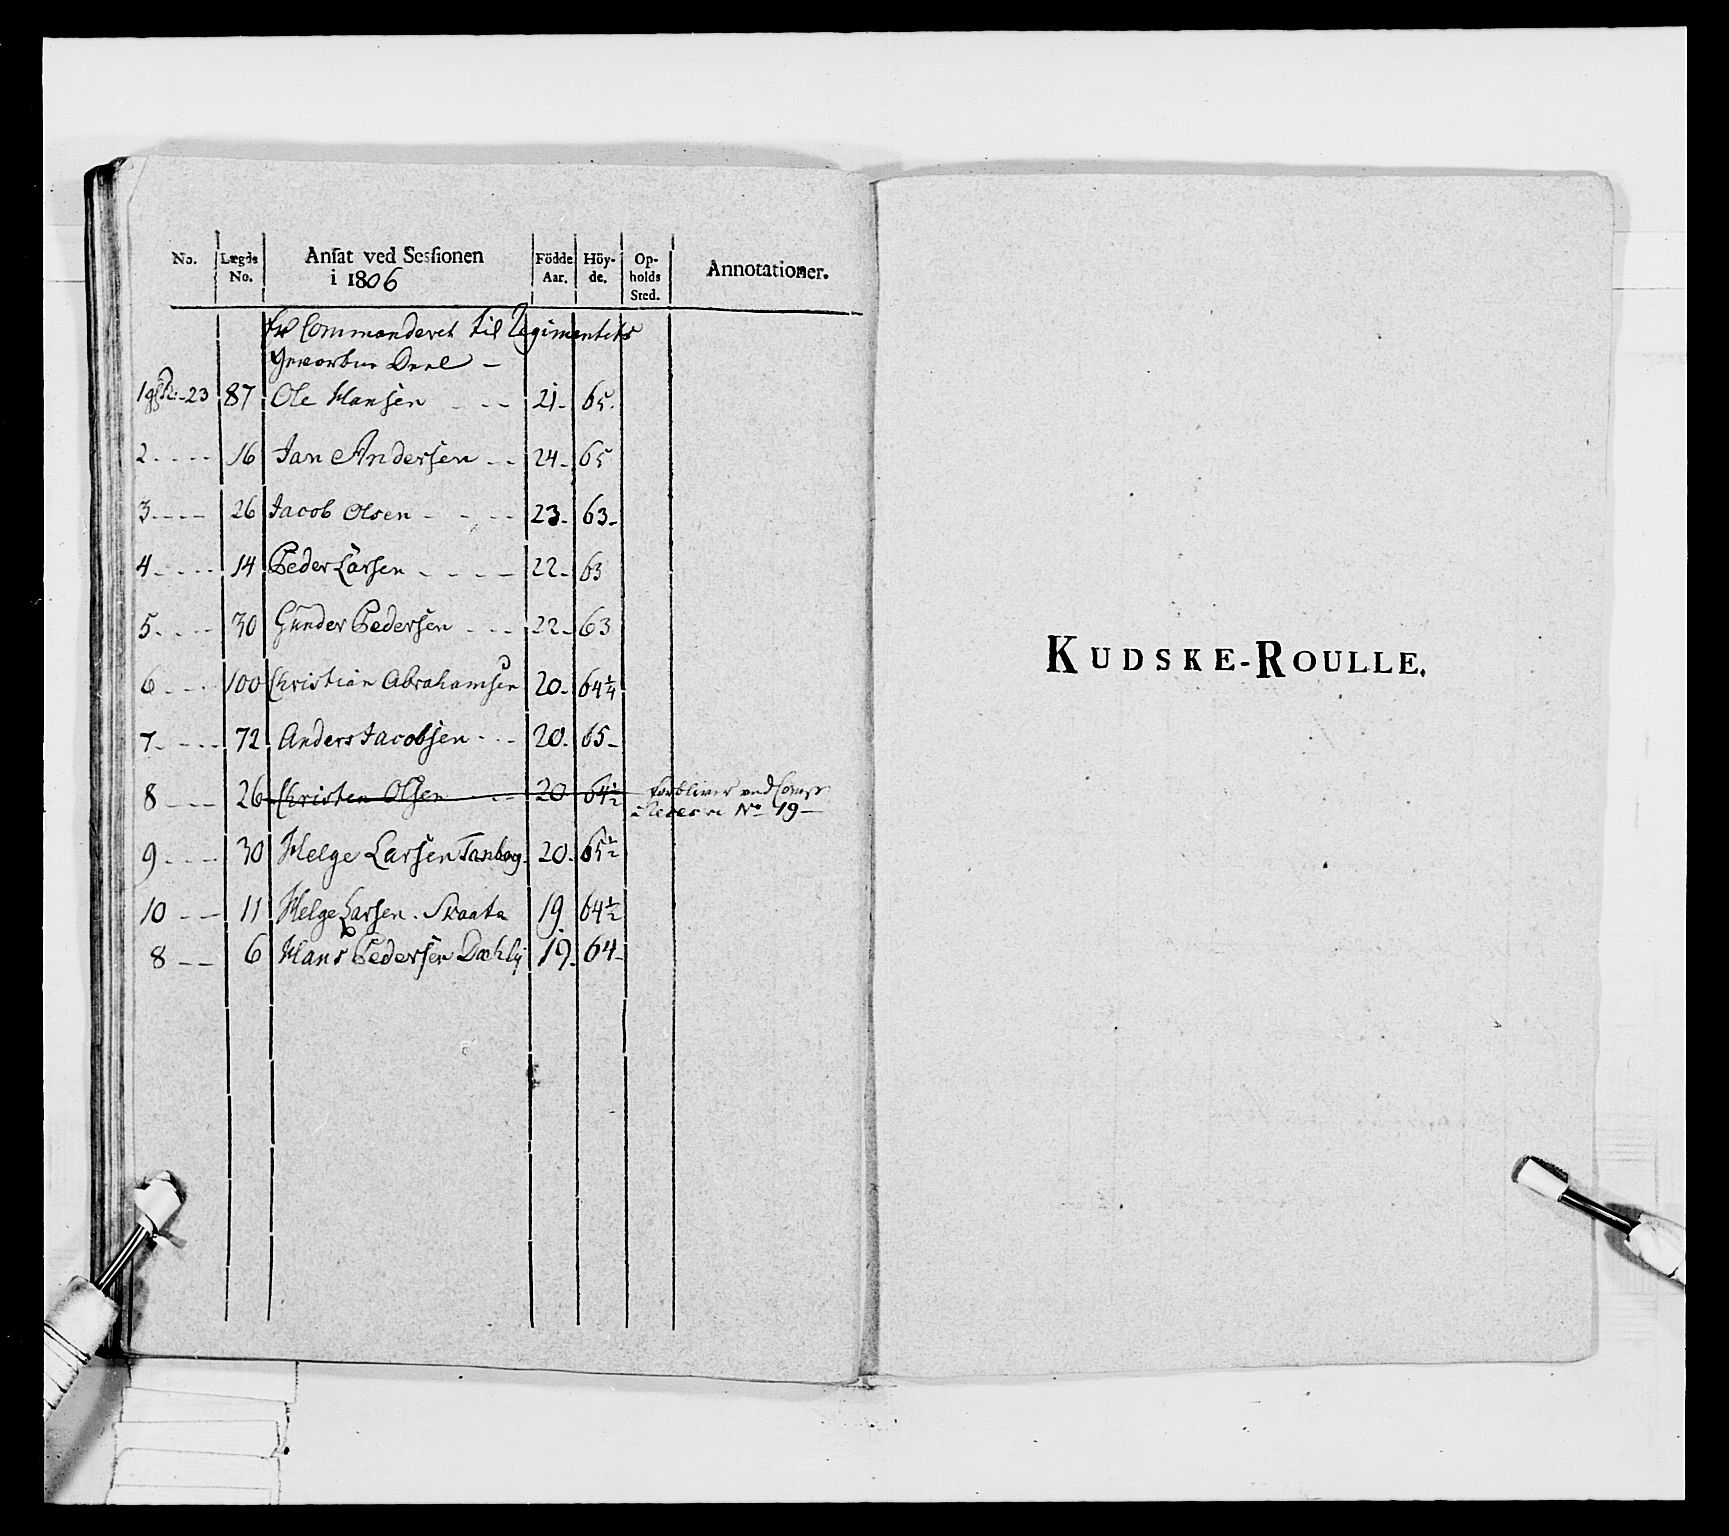 No. Lægds No. Ansat ved Sessionen i 1806 Födde Aar. Höy-de. Op-holds Sted. Annotationer.
Er Commanderet til Regimentets
Gevorbne Deel –
23 87 Ole Hansen - - - 21- 65.
2. - - - 16 Jan Andersen - - 24- 65
3. - - - 26 Jacob Olsen - - - - 23- 63-
4. - - - 14 Peder Larsen - - - - 22- 63
5. - - - 30 Gunder Pedersen - - - 22- 63
6 - - - 100 Christian Abrahamsen 20- 64¼
7. - - - 72 Anders Jacobsen - - - 20- 65-
8 - - - 26 Christen Olsen - - 20 64½ forbliver ved Comp
No 19 –
9 - - - 30 Helge Larsen 20- 65½
10 - - 11 Helge Larsen. 19 64½
8 - - 6 Hans Pedersen Dæhly 19- 64-
KUDSKE-ROULLE.